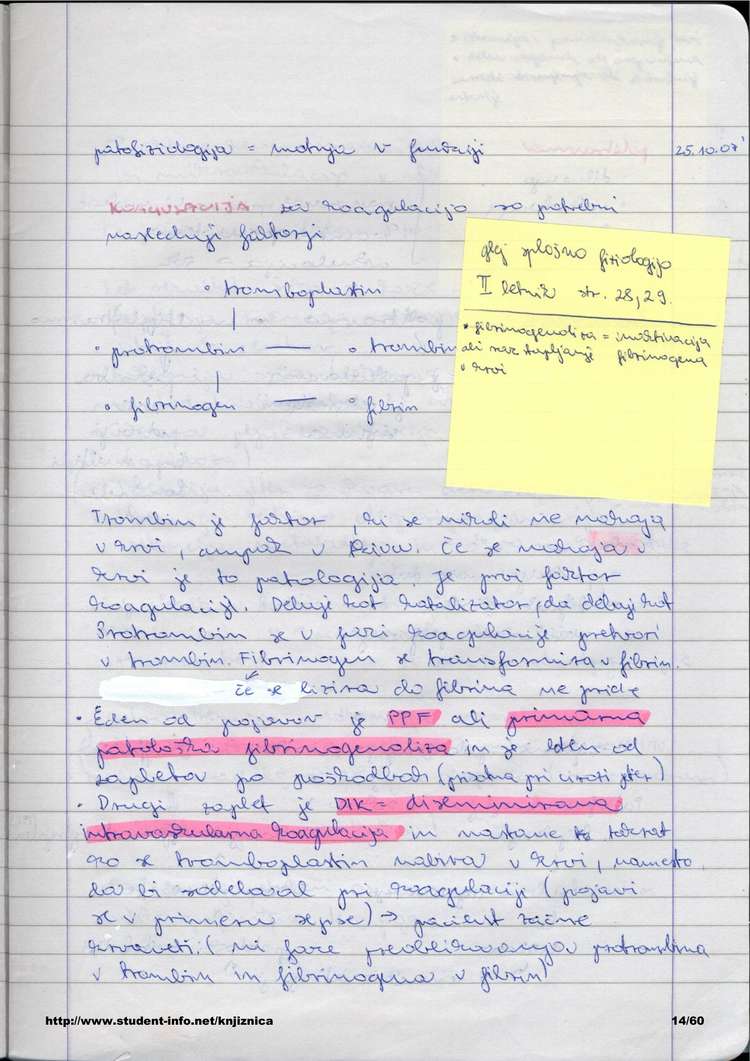 patofiziologija = motnja v funkciji
25.10.07
KOAGULACIJA za koagulacijo so potrebni
naslednji faktorji
• tromboplastin
• protrombin — • trombin
• fibrinogen — • fibrin
glej splošno fiziologijo
II letnik str. 28, 29.
• fibrinogenoliza = inaktivacija
ali raztapljanje fibrinogena
v krvi
Trombin je faktor, ki se nikoli ne nahaja
v krvi, ampak v tkivu. Če se nahaja v
krvi je to patologija. Je prvi faktor
koagulacije. Deluje kot katalizator, da deluje kot
Protrombin se v fazi koagulacije pretvori
v trombin. Fibrinogen se transformira v fibrin.
če se lizira do fibrina ne pride
• Eden od pojavov je PPF ali primarna
patološka fibrinogenoliza in je eden od
zapletov po poškodbah (prisotna pri cirozi jeter)
• Drugi zaplet je DIK = diseminirana
intravaskularna koagulacija in nastane takrat
ko se tromboplastin nabira v krvi, namesto
da bi sodeloval pri koagulaciji (pojavi
se v primeru sepse) → pacient začne
krvaveti. (ni faze preoblikovanja protrombina
v trombin in fibrinogena v fibrin)
http://www.student-info.net/knjiznica
14/60